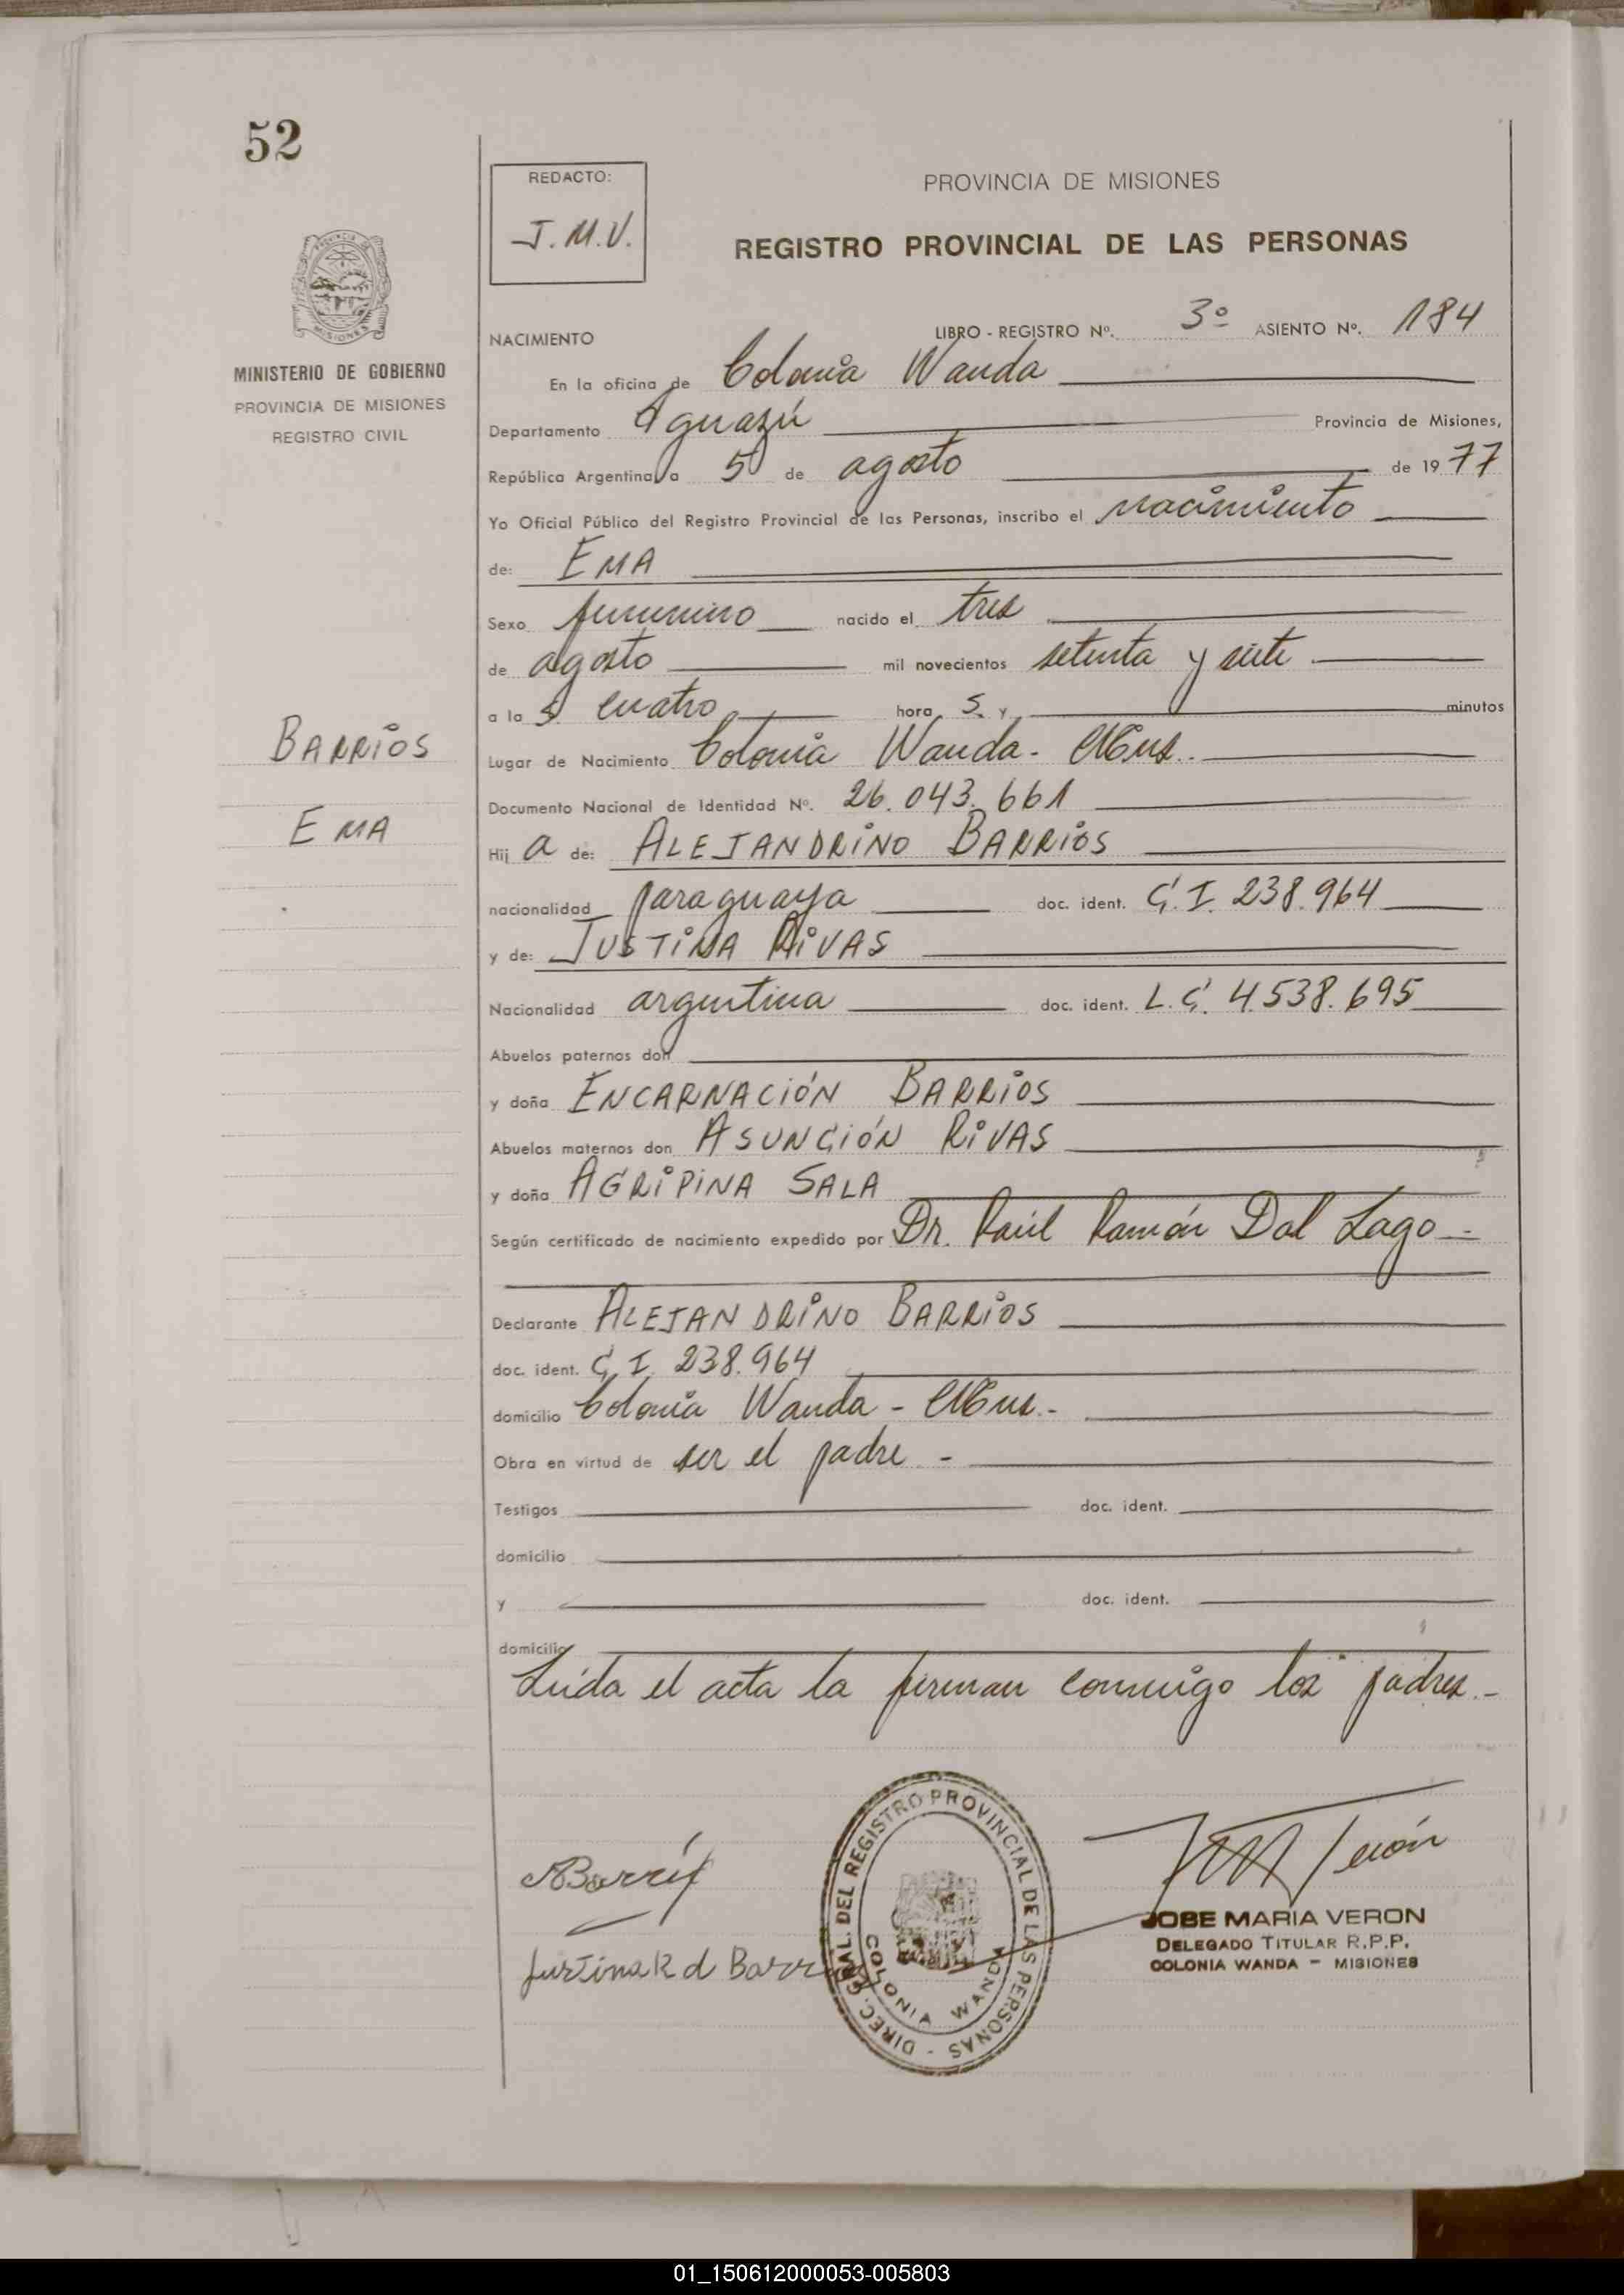 52
REDACTO:
J.M.V.
PROVINCIA DE MISIONES
REGISTRO PROVINCIAL DE LAS PERSONAS
PROVINCIA DE MISIONES
MINISTERIO DE GOBIERNO
PROVINCIA DE MISIONES
REGISTRO CIVIL
BARRIOS
EMA
NACIMIENTO LIBRO - REGISTRO Nº. 3º ASIENTO Nº. 184
En la oficina de Colonia Wanda
Departamento Iguazú Provincia de Misiones,
República Argentina, a 5 de agosto de 1977
Yo Oficial Público del Registro Provincial de las Personas, inscribo el nacimiento
de: EMA
Sexo femenino nacido el tres
de agosto mil novecientos setenta y siete
a la s cuatro hora s y minutos
Lugar de Nacimiento Colonia Wanda - Mnes.
Documento Nacional de Identidad Nº. 26.043.661
Hij a de: ALEJANDRINO BARRIOS
nacionalidad paraguaya doc. ident. C.I. 238.964
y de: JUSTINA RIVAS
Nacionalidad argentina doc. ident. L.C. 4.538.695
Abuelos paternos don
y doña ENCARNACIÓN BARRIOS
Abuelos maternos don ASUNCIÓN RIVAS
y doña AGRIPINA SALA
Según certificado de nacimiento expedido por Dr. Raúl Ramón Dal Lago -
Declarante ALEJANDRINO BARRIOS
doc. ident. C.I. 238.964
domicilio Colonia Wanda - Mnes.-
Obra en virtud de ser el padre -
Testigos doc. ident.
domicilio
y doc. ident.
domicilio
Leída el acta la firman conmigo los padres.-
Justina R d Barrios
DIREC. GRAL. DEL REGISTRO PROVINCIAL DE LAS PERSONAS -
COLONIA WANDA
JOSE MARIA VERON
DELEGADO TITULAR R.P.P.
COLONIA WANDA - MISIONES
01_150612000053-005803